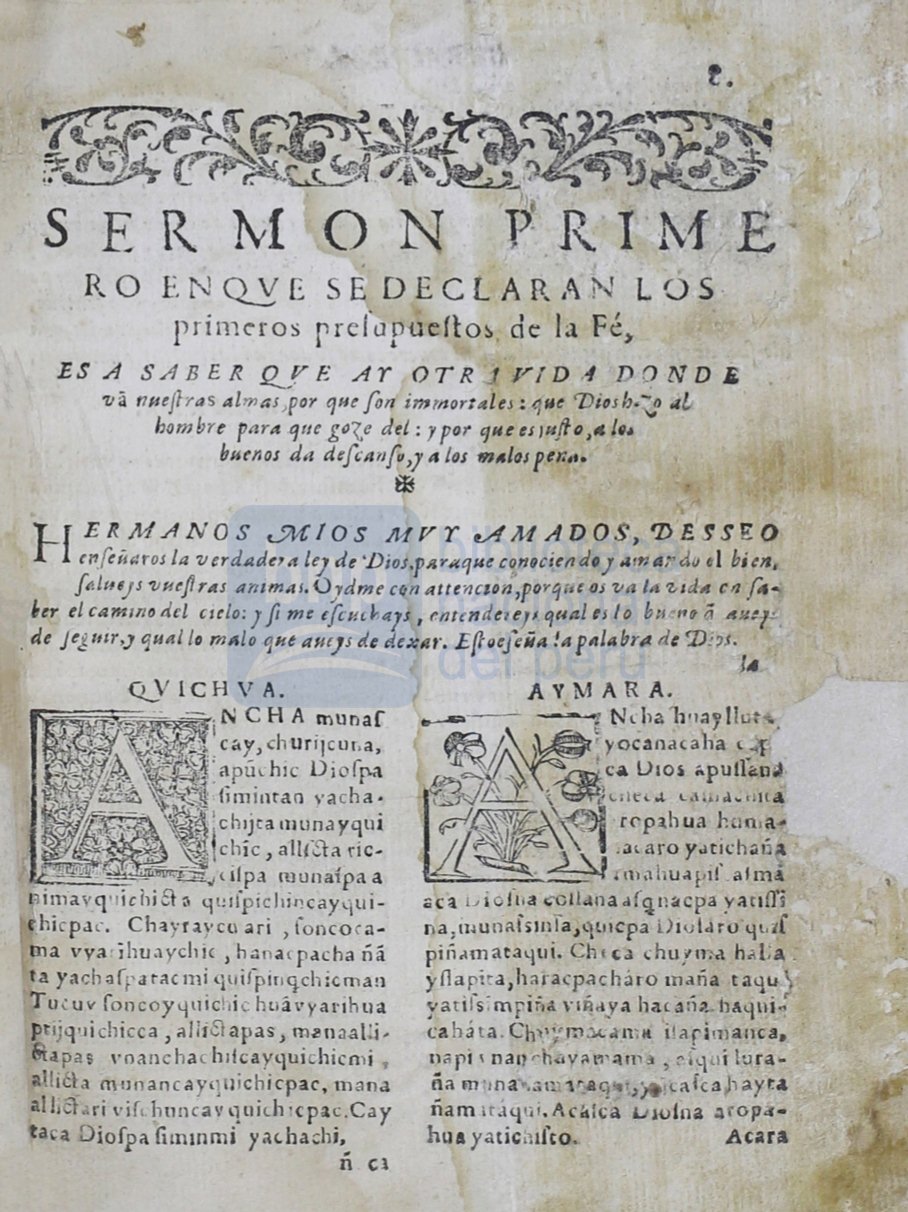 2.
SERMON PRIME
RO ENQVE SE DECLARAN LOS
primeros presupuestos de la Fé,
ES A SABER QVE AY OTRA VIDA DONDE
vã nuestras almas, por que son immortales: que Dios hizo al
hombre para que goze del: y por que es justo, a los
buenos da descanso, y a los malos pena.
HERMANOS MIOS MVY AMADOS, DESSEO
enseñaros la verdadera ley de Dios, paraque conociendo y amando el bien,
salueys vuestras animas. Oydme con attencion, porque os va la vida en sa-
ber el camino del cielo: y si me escuchays, entendereys qual es lo bueno q̃ aueys
de seguir, y qual lo malo que aueys de dexar. Esto eseña la palabra de Dios.
la
QVICHVA.
ANCHA munas
cay, churijcuna,
apũchic Diospa
simintan yacha-
chijta munayqui
chic, allicta ric-
cispa munaspa a
nimayquichicta quispichincayqui-
chicpac. Chayraycu ari, soncoca-
ma vyarihuaychic, hanacpacha ñã
ta yachaspatacmi quispinqchicman
Tucuy soncoyquichic huãvyarihua
ptijquichicca, allictapas, manaalli-
ctapas vnanchachiscayquichicmi,
allicta munancayquichicpac, mana
allictari vischuncayquichicpac. Cay
taca Diospa siminmi yachachi,
ñ ca
AYMARA.
ANcha huayllu
yocanacaha
ca Dios apussana
aropahua huma-
yatichaña
aca Diosna collana
na, munassinsa, Diosaro
piñamataqui. Checa chuyma hasa
ysapita, haracpacháro maña taqu
viñaya hacaña haqui-
caháta. Chuymacama isapimanca,
lura-
ña hayta
ñamatáqui. Acasca Diosna aropa-
hua yatichisto. Acara
biblioteca
nacional
del perú